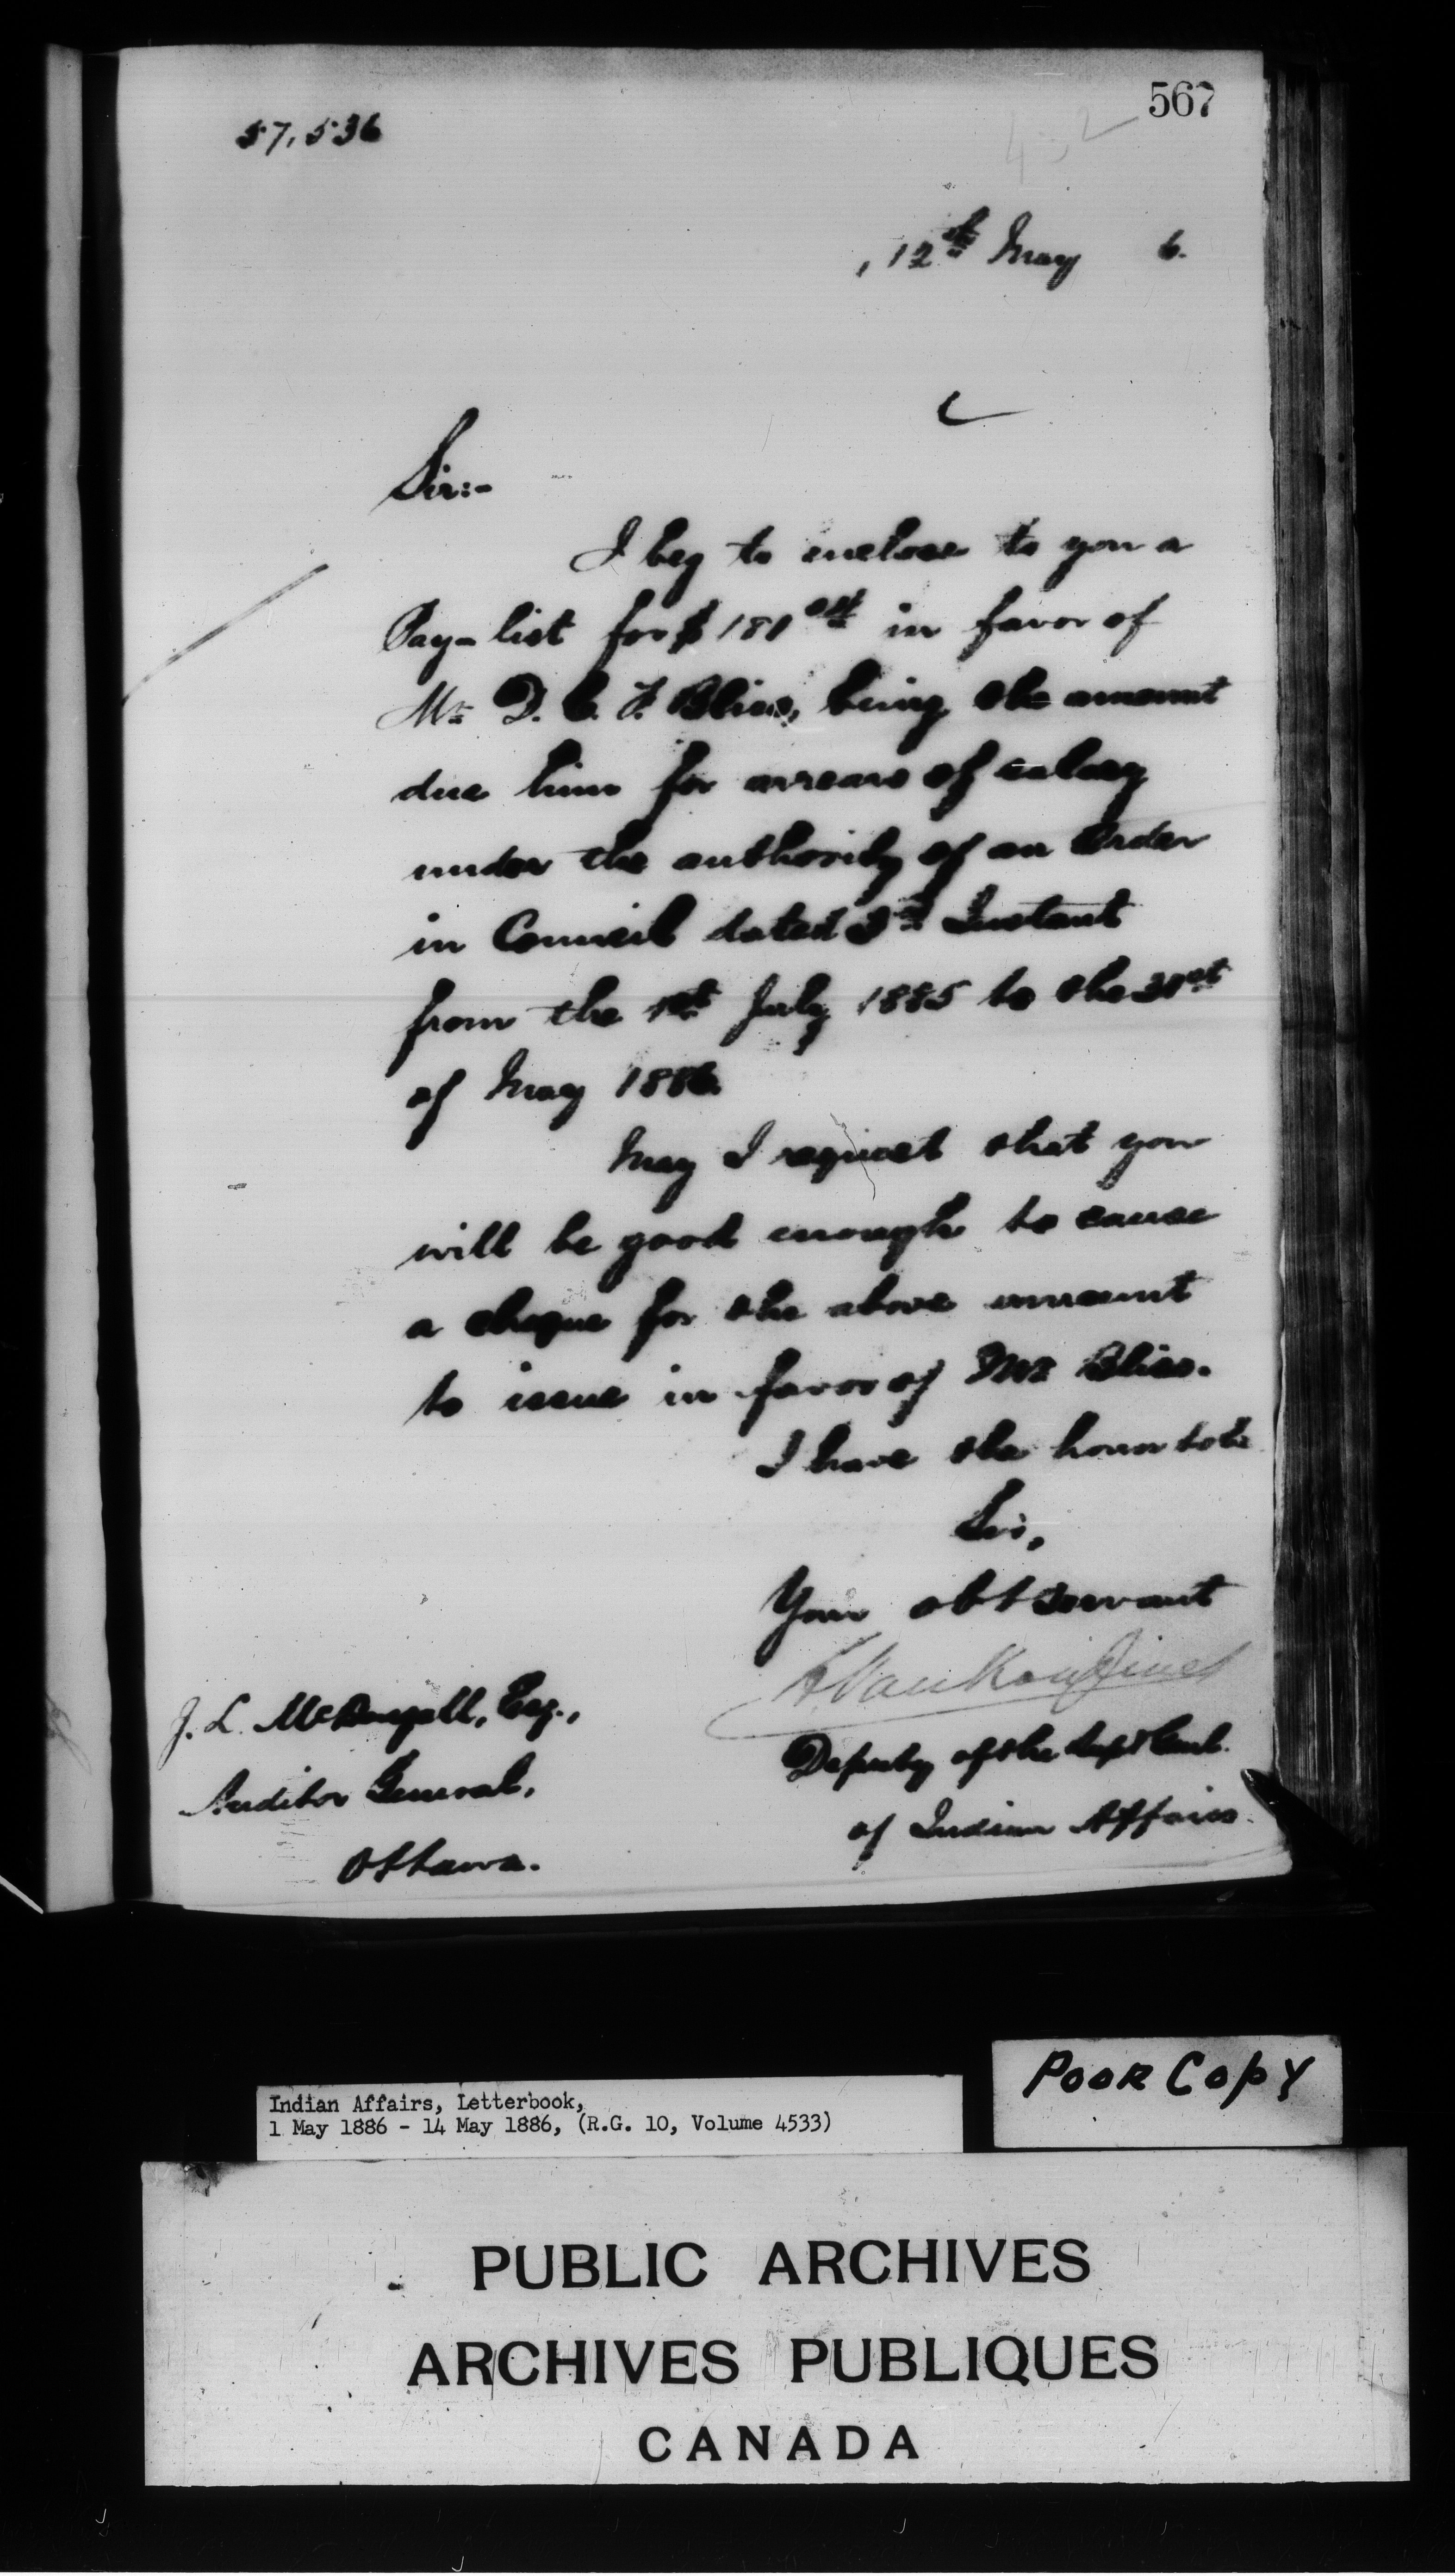 567
57,536
, 12th May 6.
Sir:-
I beg to enclose to you a
Pay-list for $ in favor of
Mr D. C. F. Bliss, being the amount
due him for arrears of salary
under the authority of an Order
in Council dated 3rd Instant
from the 1st July 1885 to the 31st
of May 1886.
May I request that you
will be good enough to cause
a cheque for the above amount
to issue in favor of Mr Bliss.
I have the honor to be
Sir,
Your obt servant
L VanKoughnet
Deputy of the Supt Genl.
of Indian Affairs.
J. L. McDougall, Esq.,
Auditor General,
Ottawa.
POOR COPY
Indian Affairs, Letterbook,
1 May 1886 - 14 May 1886, (R.G. 10, Volume 4533)
PUBLIC ARCHIVES
ARCHIVES PUBLIQUES
CANADA